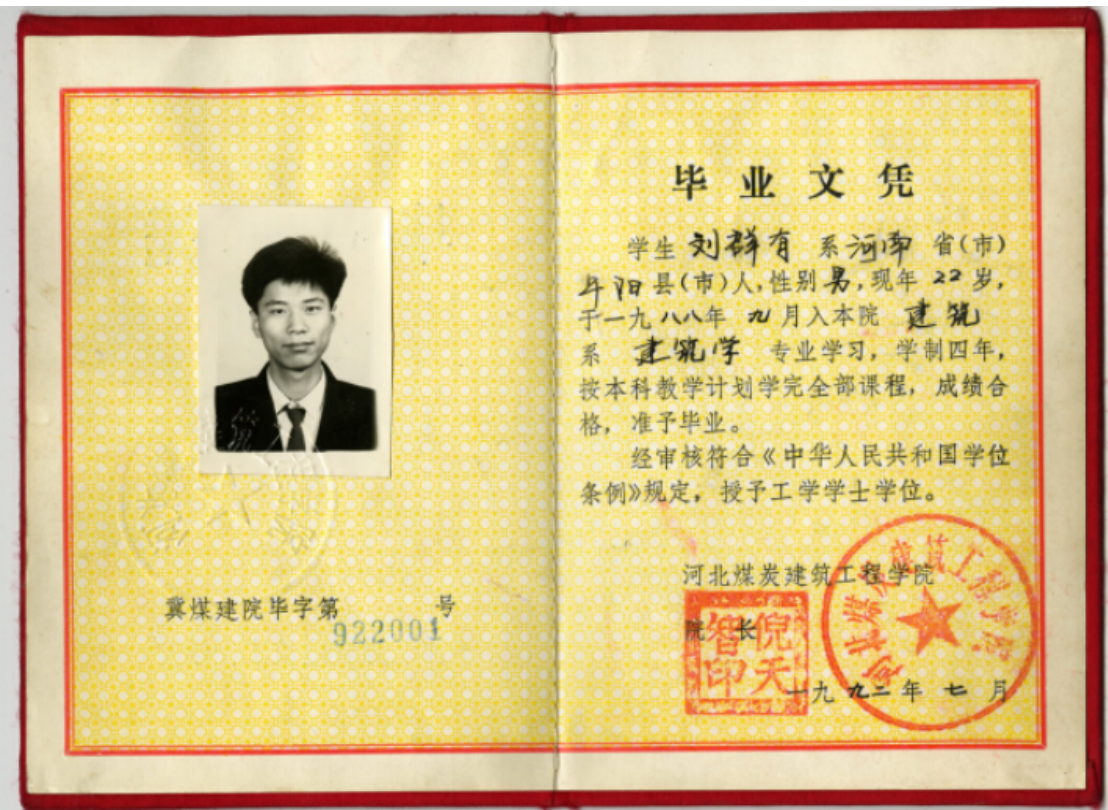 冀煤建院毕字第 号
922001
毕业文凭
学生 刘群有 系河南 省(市)
县(市)人,性别男,现年 22 岁,
于一九八八年 九 月入本院 建筑
系 建筑学 专业学习,学制四年,
按本科教学计划学完全部课程,成绩合
格,准予毕业。
经审核符合《中华人民共和国学位
条例》规定,授予工学学士学位。
河北煤炭建筑工程学院
院 长
倪天智印
一九九二年 七 月
河北煤炭建筑工程学院